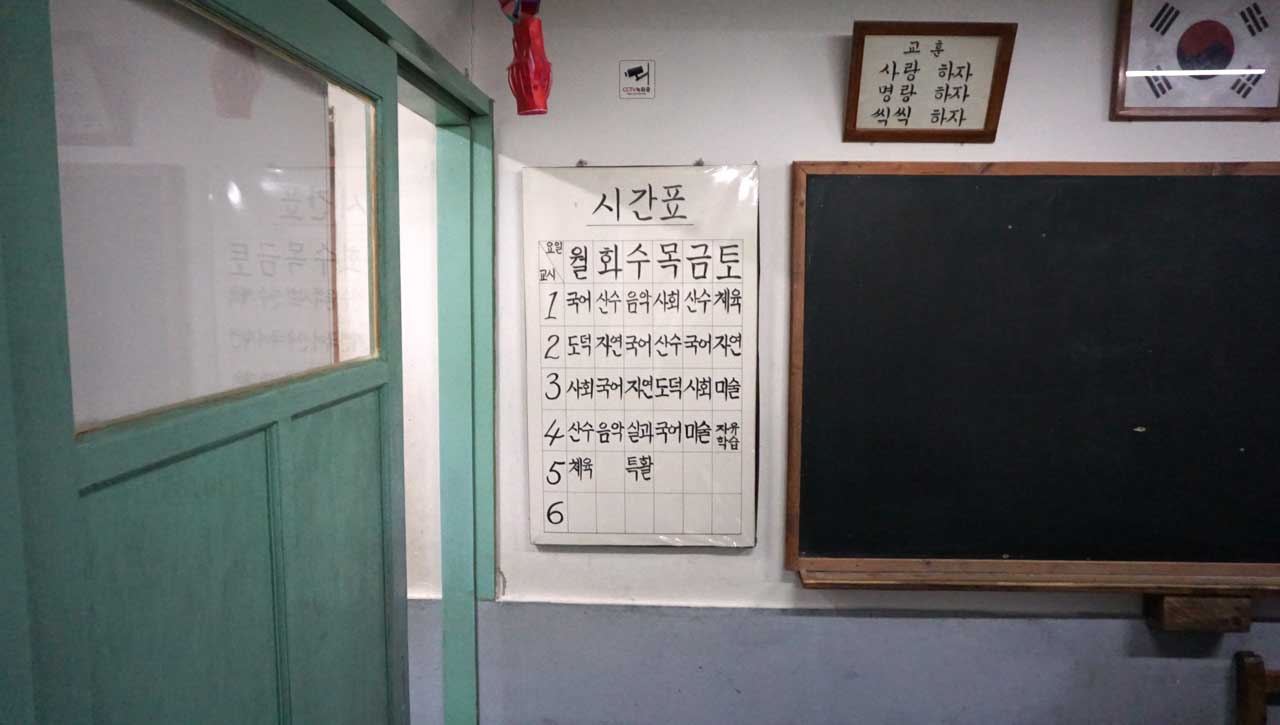 CCTV녹화중
교훈
사랑 하자
명랑 하자
씩씩 하자
시간표
요일 월 화 수 목 금 토
교시
1 국어 산수 음악 사회 산수 체육
2 도덕 자연 국어 산수 국어 자연
3 사회 국어 자연 도덕 사회 미술
4 산수 음악 실과 국어 미술 자유학습
5 체육 특활
6